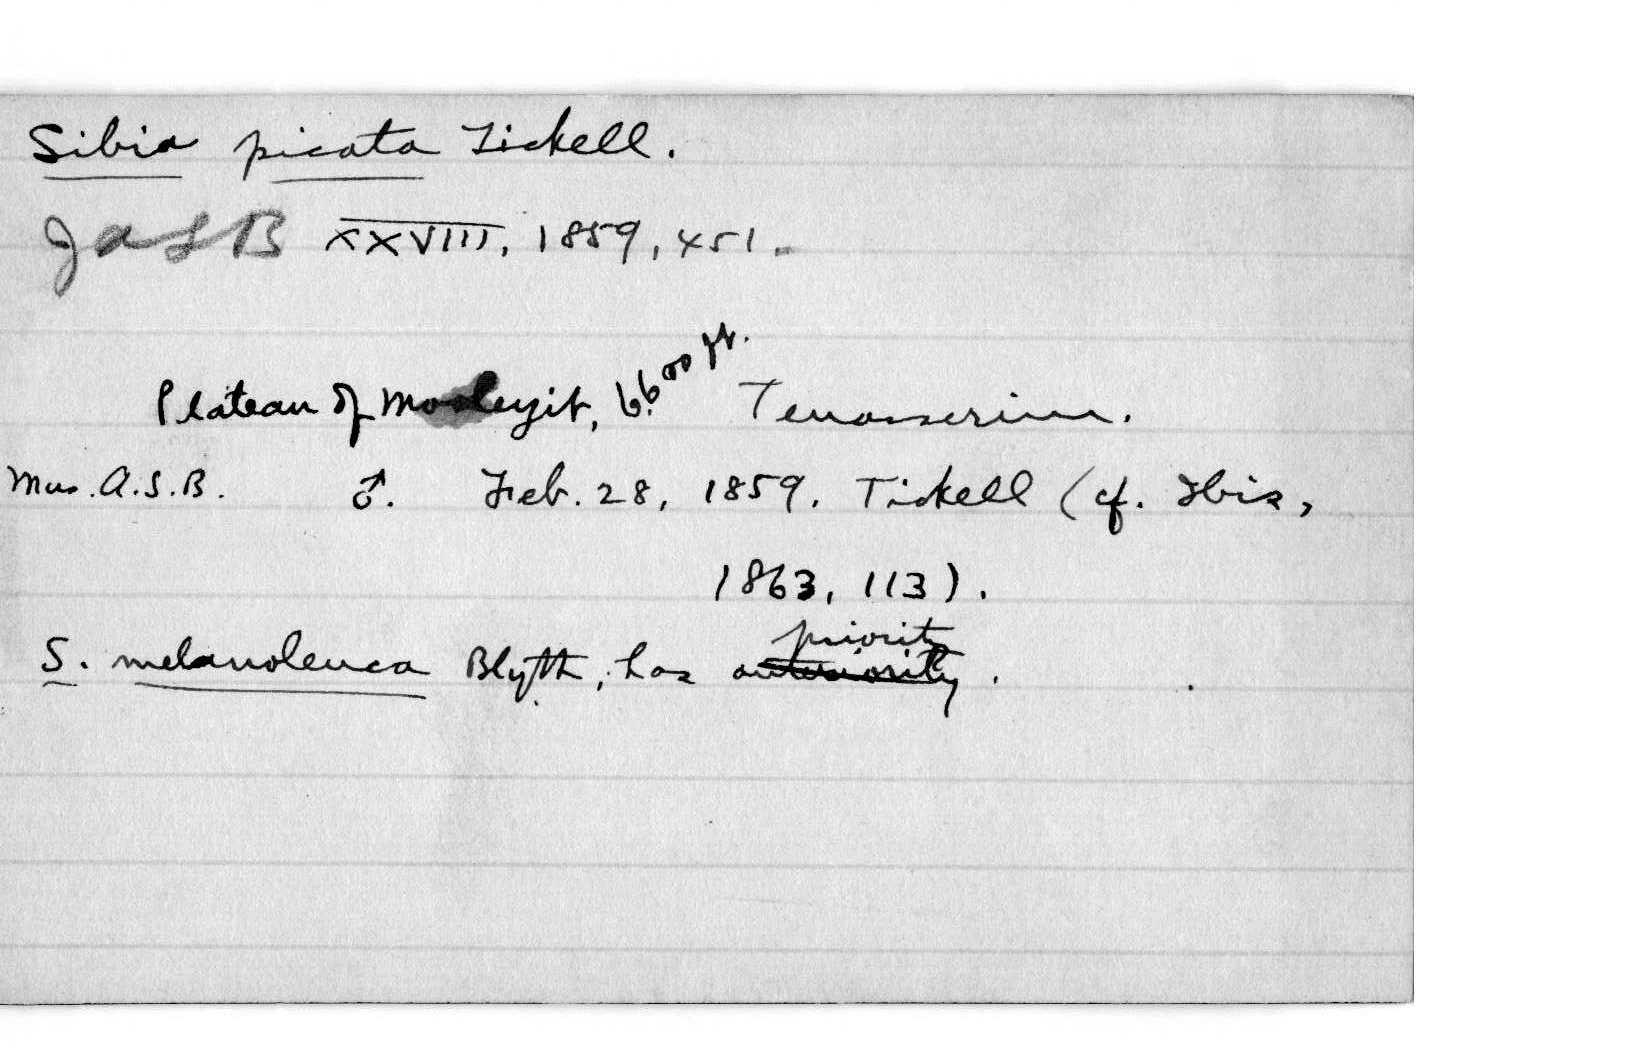 Sibia picata Tickell.
JASB XXVIII, 1859, 451.
Plateau of Mooleyit, 6600 ft. Tenasserim.
Mus. A.S.B. ♂. Feb. 28, 1859. Tickell (cf. Ibis,
1863, 113).
priority
S. melanoleuca Blyth, has anteriority.